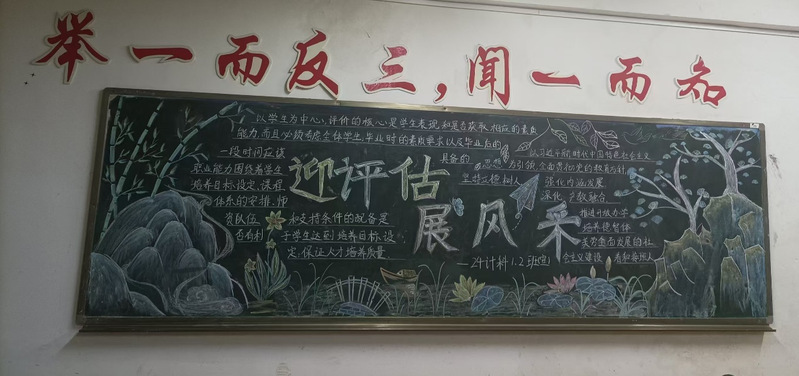 举一而反三,闻一而知
以学生为中心,评价的核心是学生表现和是否获取相应的素质
能力,而且必须考虑全体学生,毕业时的素质要求以及毕业后的
一段时间应该
具备的
职业能力围绕着学生
培养目标,设定,课程
体系的安排,师
资队伍
和支持条件的配备是
否有利
于学生达到培养目标,设
定,保证人才培养质量
迎评估
展风采
思想
为引领,全面贯彻党的教育方针,
以习近平新时代中国特色社会主义
坚持立德树人
强化内涵发展
深化产教融合
推进升级办学
培养德智体
美劳全面发展的社
会主义建设
者和接班人
—24计科1.2班宣